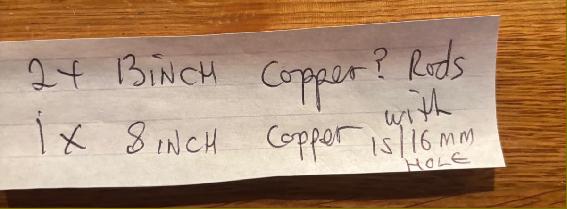 2x 13 iNCH Copper? Rods
1x 8 INCH Copper with 15/16 MM HOLE